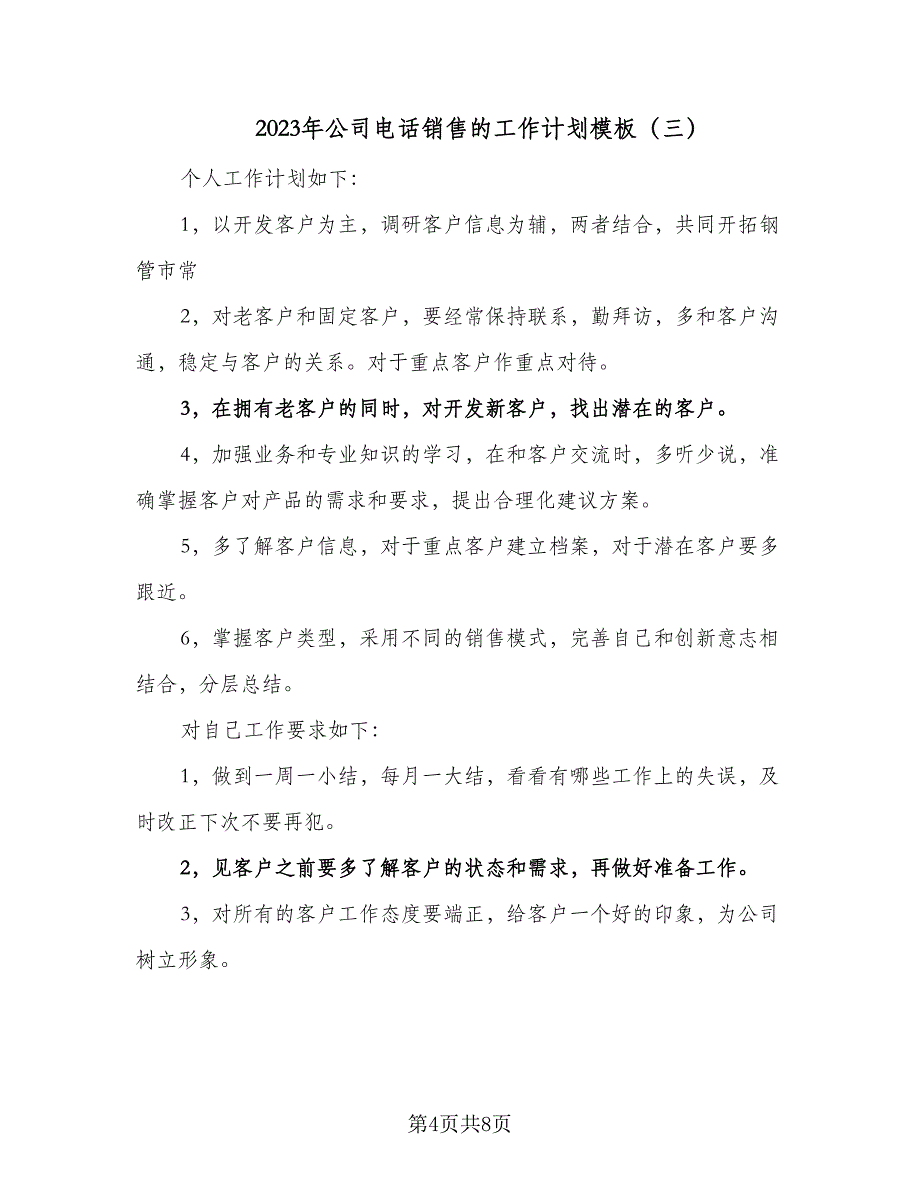 2023年公司电话销售的工作计划模板（三）
个人工作计划如下：
1，以开发客户为主，调研客户信息为辅，两者结合，共同开拓钢
管市常
2，对老客户和固定客户，要经常保持联系，勤拜访，多和客户沟
通，稳定与客户的关系。对于重点客户作重点对待。
3，在拥有老客户的同时，对开发新客户，找出潜在的客户。
4，加强业务和专业知识的学习，在和客户交流时，多听少说，准
确掌握客户对产品的需求和要求，提出合理化建议方案。
5，多了解客户信息，对于重点客户建立档案，对于潜在客户要多
跟近。
6，掌握客户类型，采用不同的销售模式，完善自己和创新意志相
结合，分层总结。
对自己工作要求如下：
1，做到一周一小结，每月一大结，看看有哪些工作上的失误，及
时改正下次不要再犯。
2，见客户之前要多了解客户的状态和需求，再做好准备工作。
3，对所有的客户工作态度要端正，给客户一个好的印象，为公司
树立形象。
第4页共8页